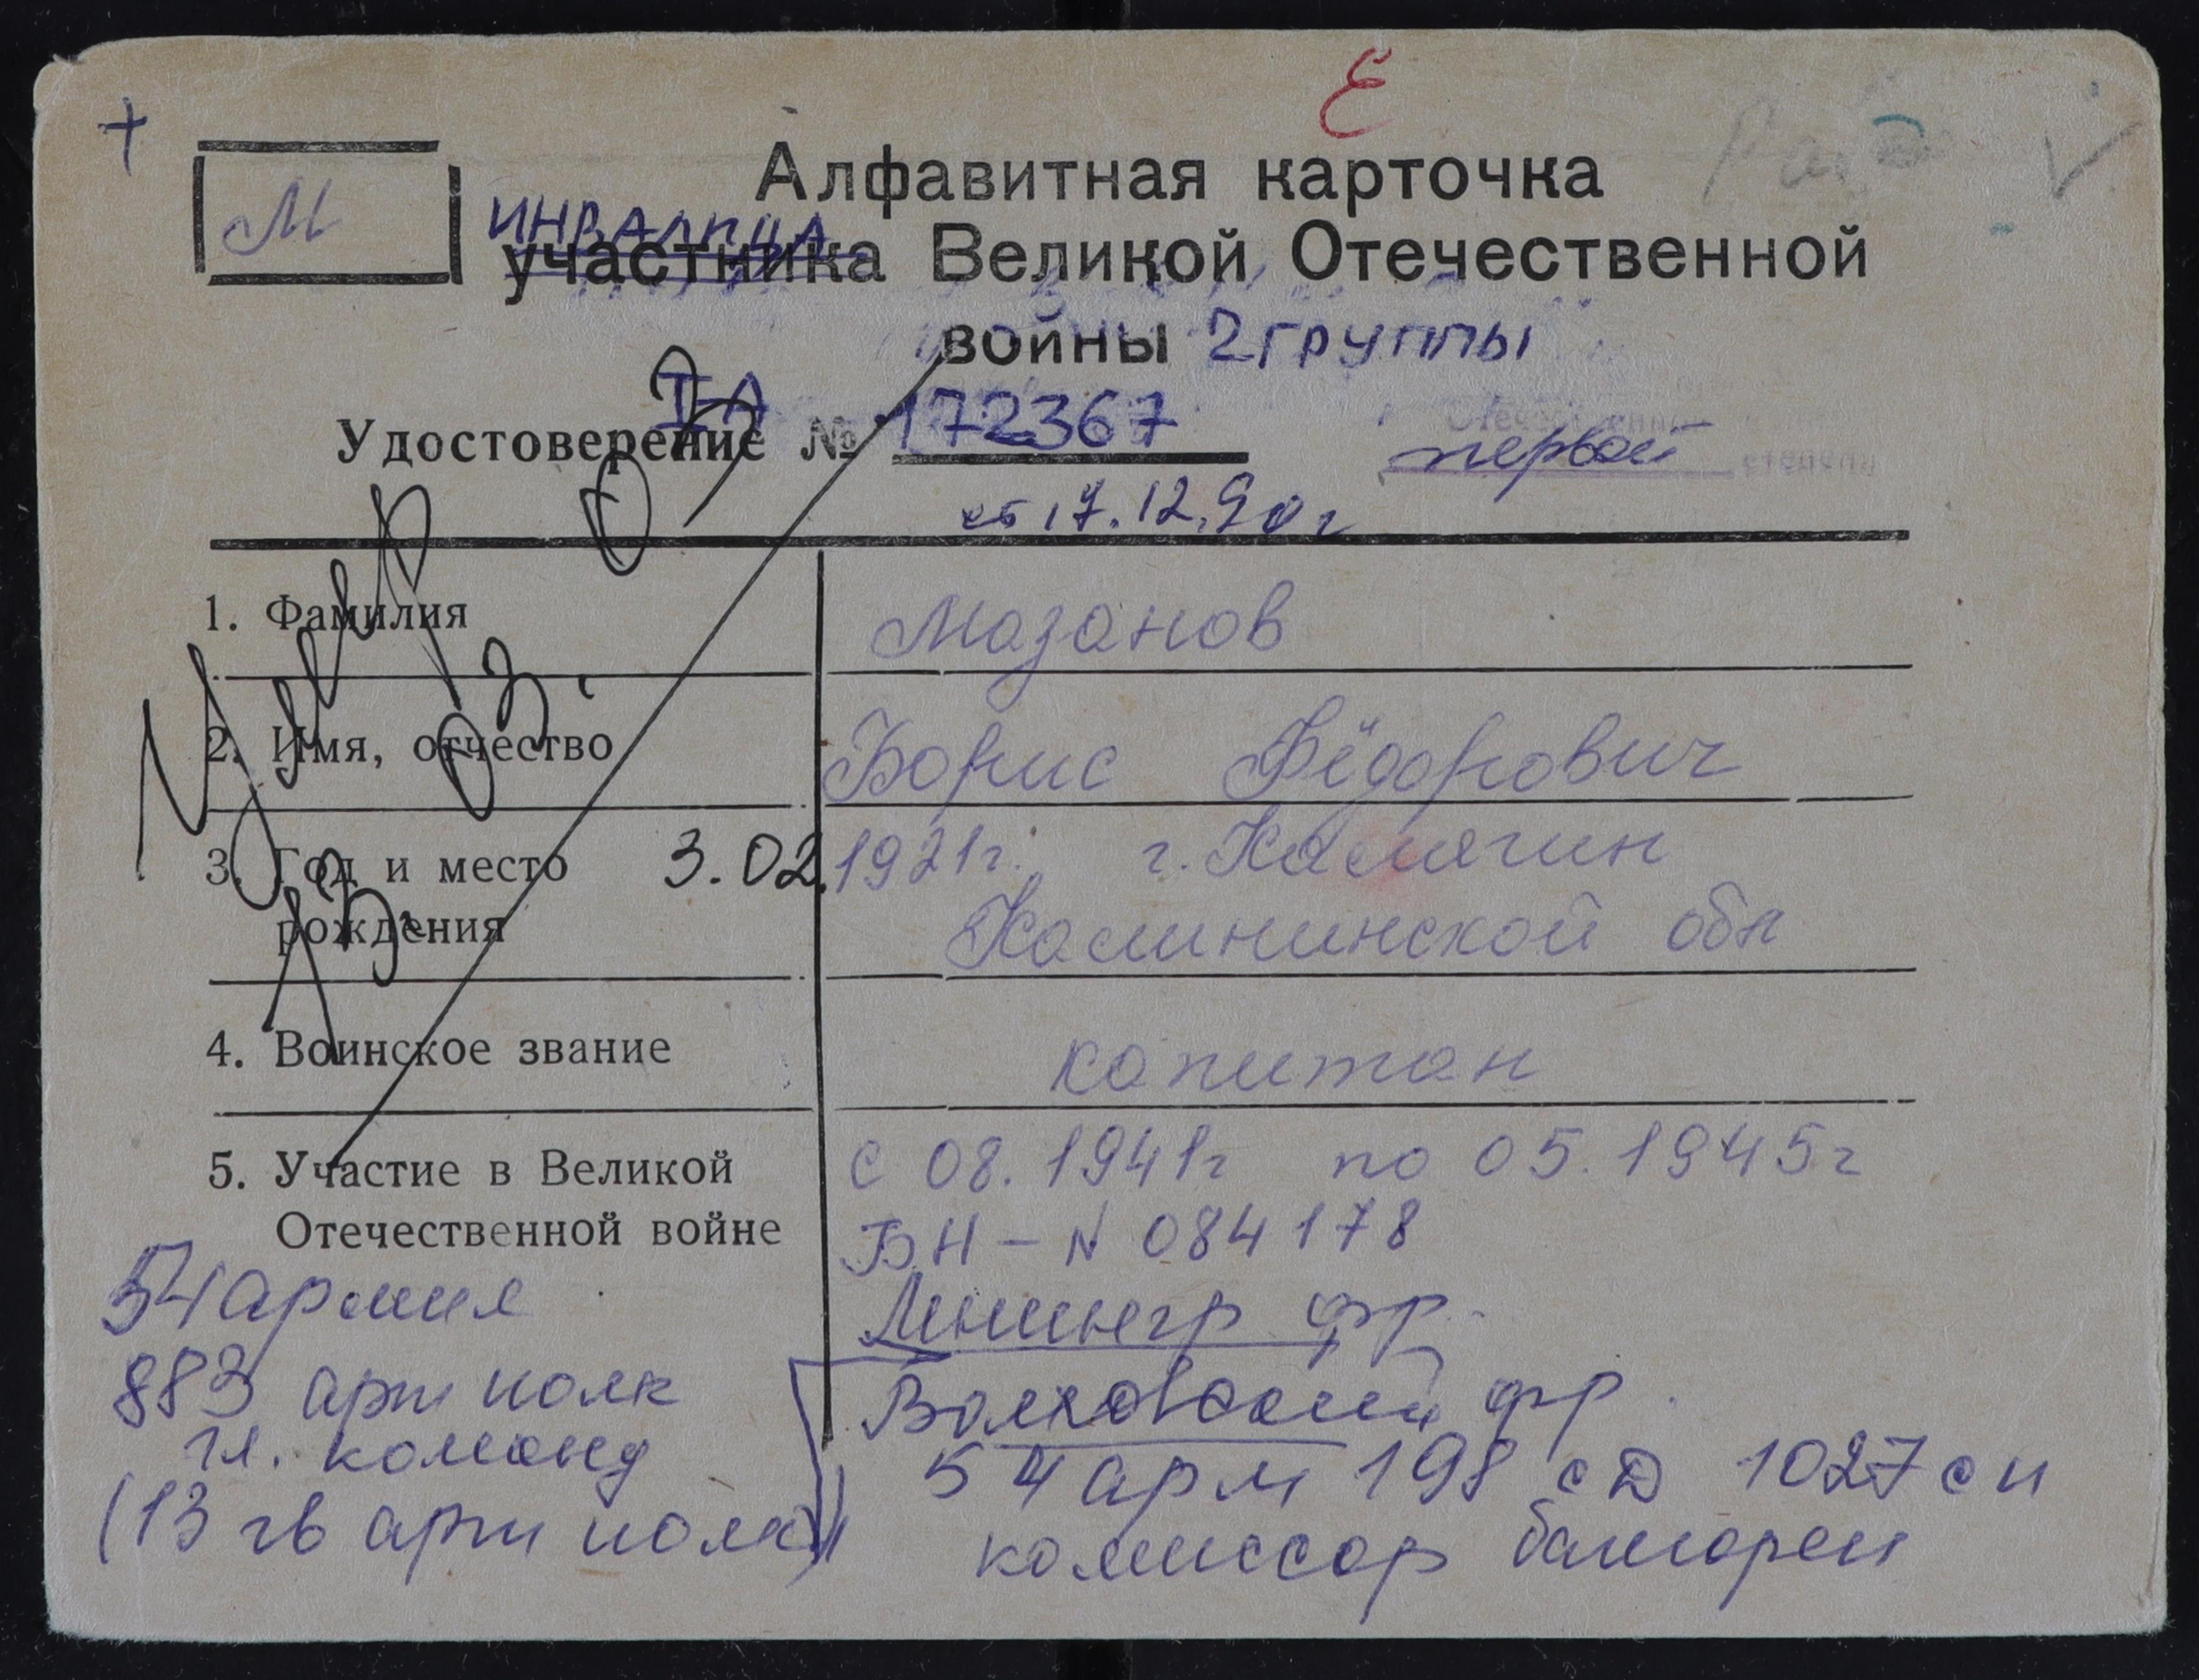 Е
Алфавитная карточка
М
ИНВАЛИДА
участника Великой Отечественной
войны 2 группы
I-А
Удостоверение № 172367
Отечественн
первой степени
от 17.12.90г
1. Фамилия Мазанов
2. Имя, отчество Борис Фёдорович
3. Год и место 3.02.1921г. г. Калягин
рождения Калининской обл
4. Воинское звание капитан
5. Участие в Великой с 08.1941г по 05.1945г
Отечественной войне БН - N 084178
54 армия Ленингр фр.
883 арт полк Волховский фр.
гл. команд 54 арм 198 сД 1027 сп
(13 гв арт полк) комиссар батареи